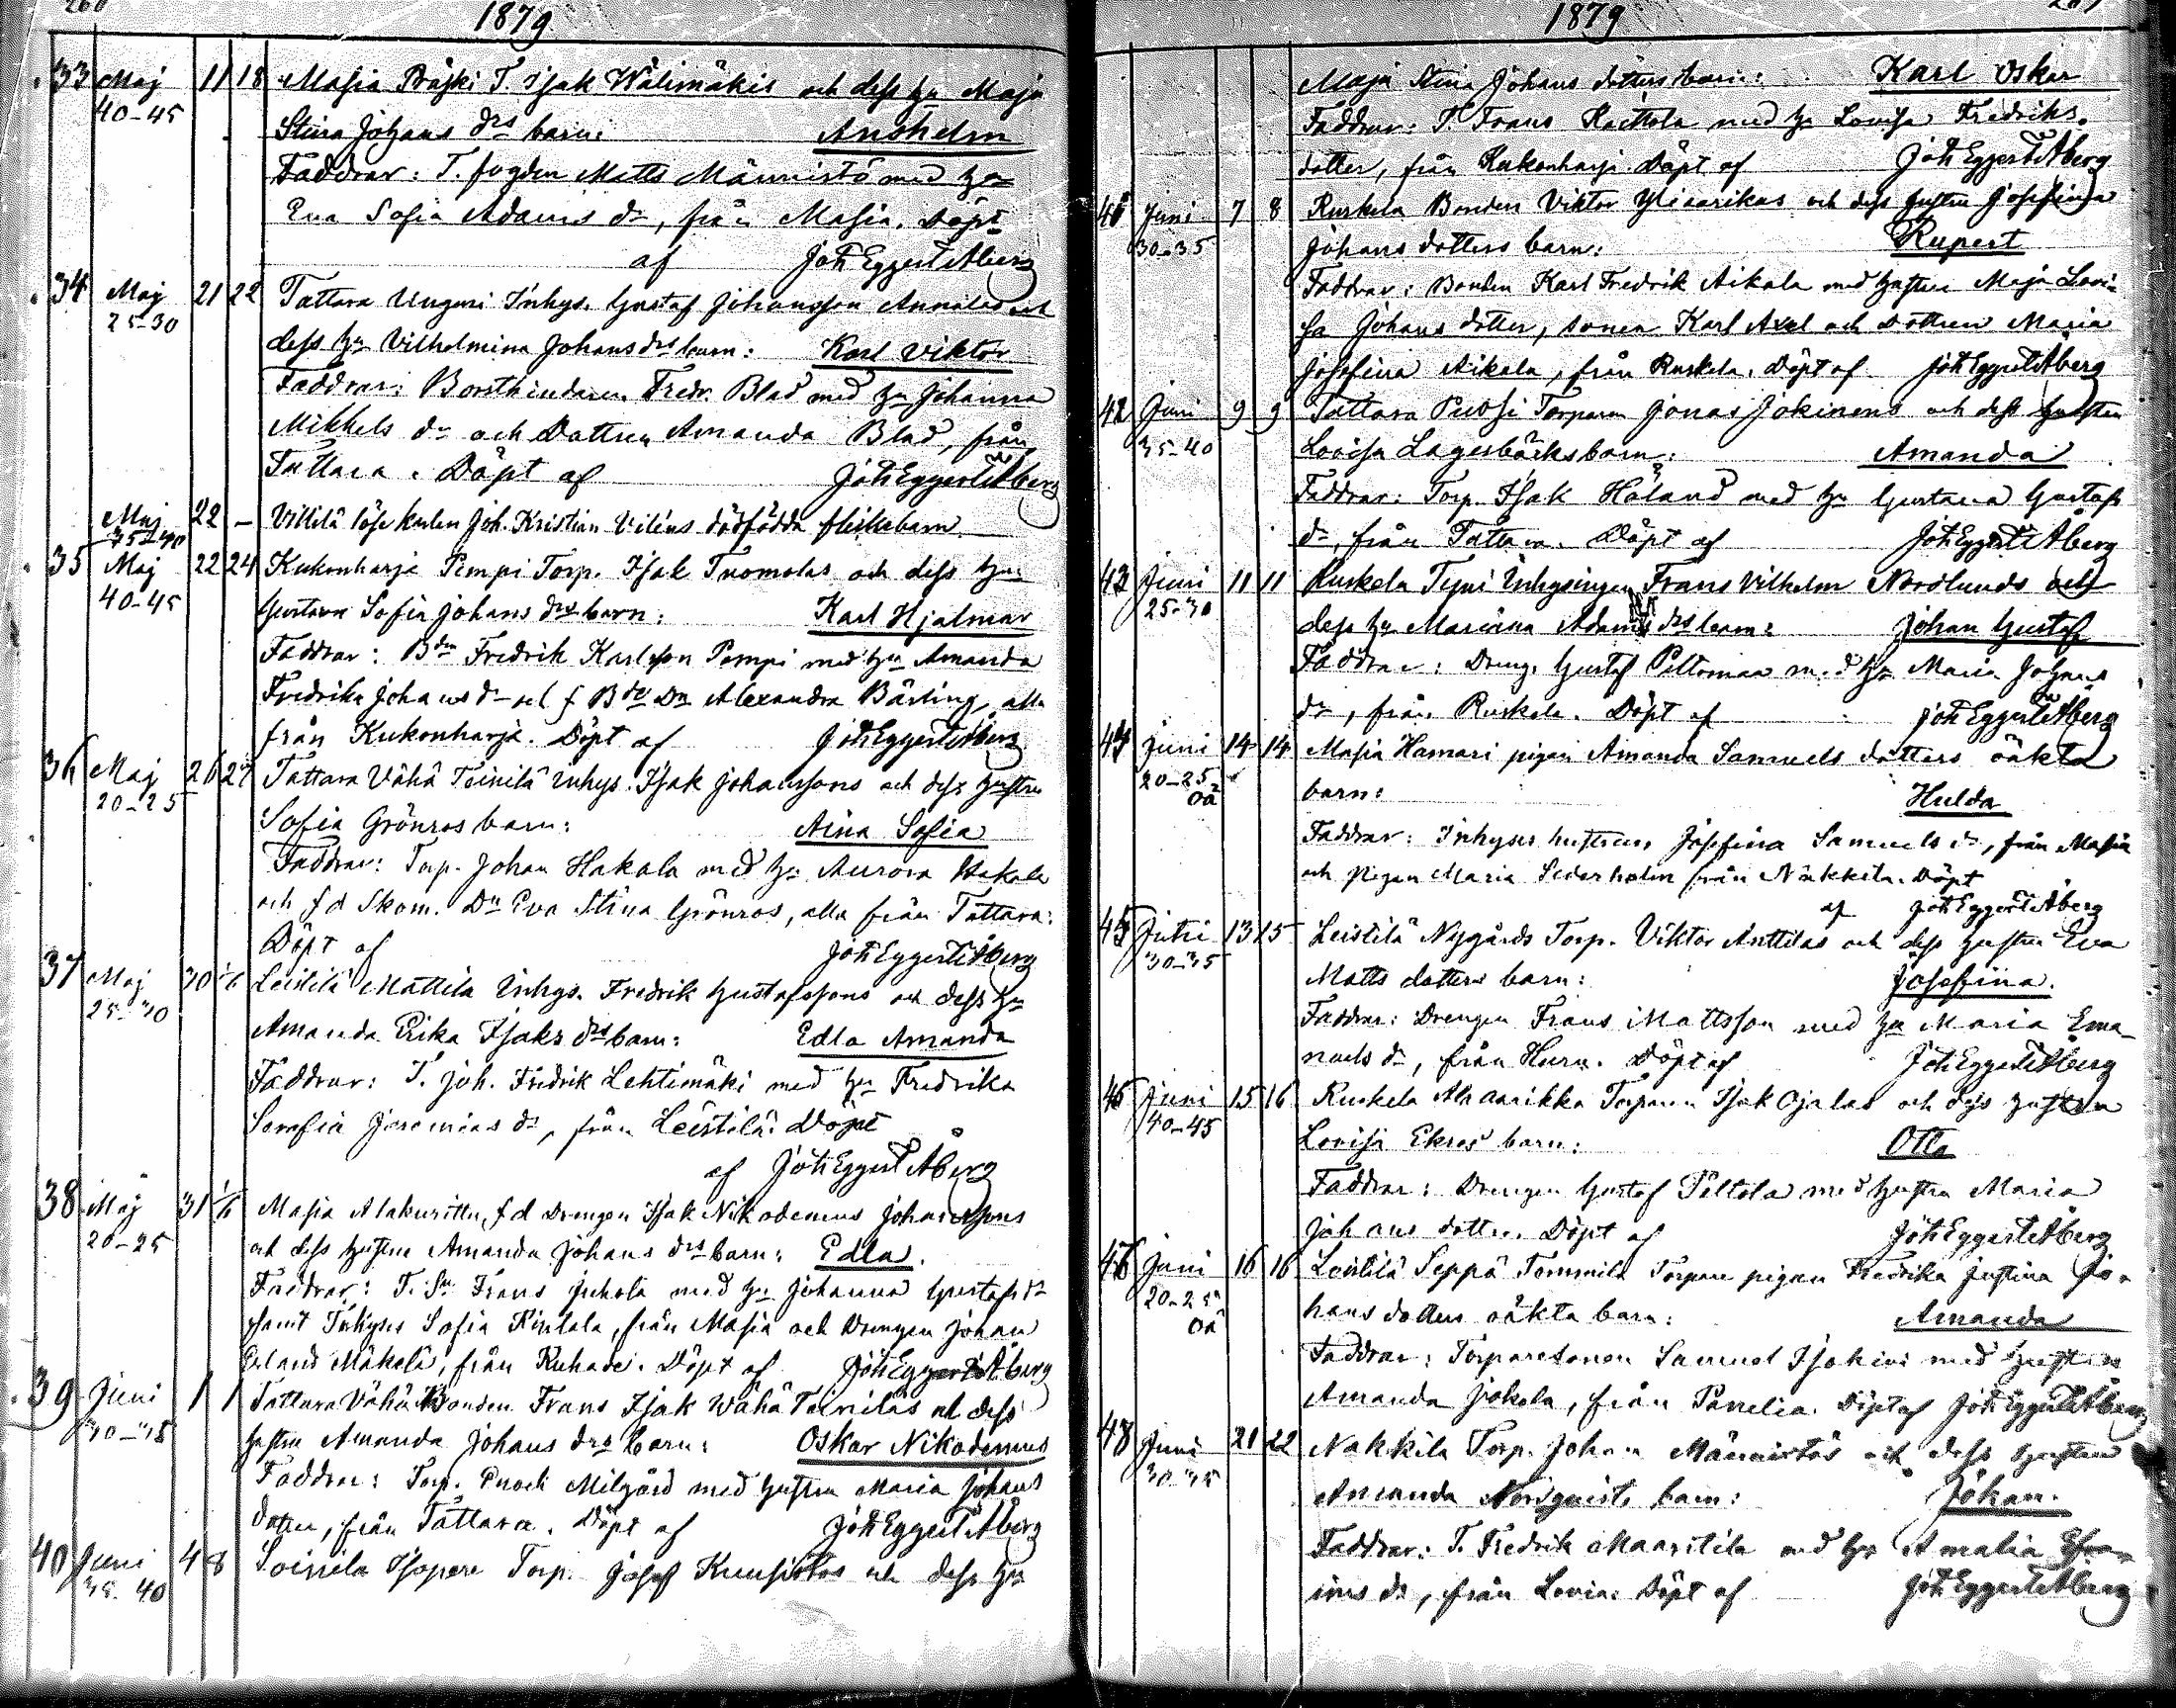 260
1879
33 Maj 11 18 Masia Präjki T. Isak Wälimäkis och dess hu Maja
40-45 Stina Johans drs barn: Anshelm
Faddrar: T. fogden Matts Männistö med hu
Eva Sofia Adams dr, från Masia. Döpt
af Joh Eggert Åberg
34 Maj 21 22 Tattara Ungeri Inhys. Gustaf Johansson Annalas och
25-30 dess hu Vilhelmina Johans drs barn: Karl Viktor
Faddrar: Borstbindaren Fredr. Blad med hu Johanna
Mikkels dr och Dottren Amanda Blad, från
Tattara. Döpt af Joh Eggert Åberg
Maj 22 – Villilä löse karlen Joh. Kristian Viléns dödfödda flickebarn
35-40
35 Maj 22 24 Kukonharja Pempi Torp. Isak Tuomolas och dess hu
40-45 Gustava Sofia Johans drs barn: Karl Hjalmar
Faddrar: Bdn Fredrik Karlsson Pempi med hu Amanda
Fredrika Johans dr och f Bde Dn Alexandra Bärling, alla
från Kukonharja. Döpt af Joh Eggert Åberg
36 Maj 26 27 Tattara Vähä Teinilä Inhys. Isak Johanssons och dess hustru
20-25 Sofia Grönros barn: Aina Sofia
Faddrar: Torp. Johan Hakala med hu Aurora Hakala
och f d Skom. Dn Eva Stina Grönros, alla från Tattara.
Döpt af Joh Eggert Åberg
37 Maj 30 1/6 Leistilä Mattila Inhys. Fredrik Gustafssons och dess hu
25-30 Amanda Erika Isaks drs barn: Edla Amanda
Faddrar: T. Joh. Fredrik Lehtimäki med hu Fredrika
Serafia Jeremias dr, från Leistilä. Döpt
af Joh Eggert Åberg
38 Maj 31 1/6 Masia Alakuritta, f d Drengen Isak Nikodemus Johanssons
20-25 och dess hustru Amanda Johans drs barn: Edla.
Faddrar: T. Sn Frans Juhola med hu Johanna Gustafs dr
samt Inhyses Sofia Rintala, från Masia och Drengen Johan
Erland Mäkelä, från Ruhade. Döpt af Joh Eggert Åberg
39 Juni 1 1 Tattara Vähä Bonden Frans Isak Wähä Teiniläs och dess
30-35 hustru Amanda Johans drs barn: Oskar Nikodemus
Faddrar: Torp. Enock Milgård med hustru Maria Johans
dotter, från Tattara. Döpt af Joh Eggert Åberg
40 Juni 4 8 Soinila Isopere Torp. Josef Kuusistos och dess hu
35-40
1879
Maja Stina Johans dotters barn: Karl Oskar
Faddrar: T. Frans Raittola med hu Lovisa Fredriks.
dotter, från Kukonharja. Döpt af Joh Eggert Åberg
41 Juni 7 8 Ruskela Bonden Viktor Yliaarikas och dess hustru Josefina
30-35 Johans dotters barn: Rupert
Faddrar: Bonden Karl Fredrik Aikala med hustru Maja Lovi-
sa Johans dotter, sonen Karl Axel och dottren Maria
Josefina Aikala, från Ruskela. Döpt af Joh Eggert Åberg
42 Juni 9 9 Tattara Torparen Jonas Jokinens och dess hustru
35-40 Lovisa Lagerbäcks barn: Amanda
Faddrar: Torp. Isak Höland med hu Gustava Gustafs
dr, från Tattara. Döpt af Joh Eggert Åberg
43 Juni 11 11 Ruskela Teini Inhysingen Frans Vilhelm Nordlunds och
25-30 dess hu Mariana Adams drs barn: Johan Gustaf
Faddrar: Dreng. Gustaf Peltomaa med hu Maria Johans
dr, från Ruskela. Döpt af Joh Eggert Åberg
44 Juni 14 14 Masia Hamari pigan Amanda Samuels dotters oäkta
20-25 barn: Hulda
oä
Faddrar: Inhyses hustrun Josefina Samuels dr, från Masia
och Pigan Maria Sederholm från Näkkilä. Döpt
af Joh Eggert Åberg
45 Juni 13 15 Leistilä Nygårds Torp. Viktor Anttilas och dess hustru Eva
30-35 Matts dotters barn: Josefina.
Faddrar: Drengen Frans Mattsson med hu Maria Ema-
nuels dr, från Hurn. Döpt af Joh Eggert Åberg
46 Juni 15 16 Ruskela Ala aarikka Torparen Isak Ojalas och dess hustru
40-45 Lovisa Ekros barn: Otto
Faddrar: Drengen Gustaf Peltola med hustru Maria
Johans dotter. Döpt af Joh Eggert Åberg
46 Juni 16 16 Leistilä Seppä Tommila Torpare pigan Fredrika Justina Jo-
20-25 hans dotters oäkta barn: Amanda
oä
Faddrar: Torparesonen Samuel Isokivi med hustru
Amanda Jokela, från Panelia. Döpt af Joh Eggert Åberg
48 Juni 21 22 Nakkila Torp. Johan Männistös och dess hustru
30-35 Amanda Nordqvists barn: Johan.
Faddrar: T. Fredrik Maaritila med hu Amalia Efra-
ims dr, från Lovia. Döpt af Joh Eggert Åberg